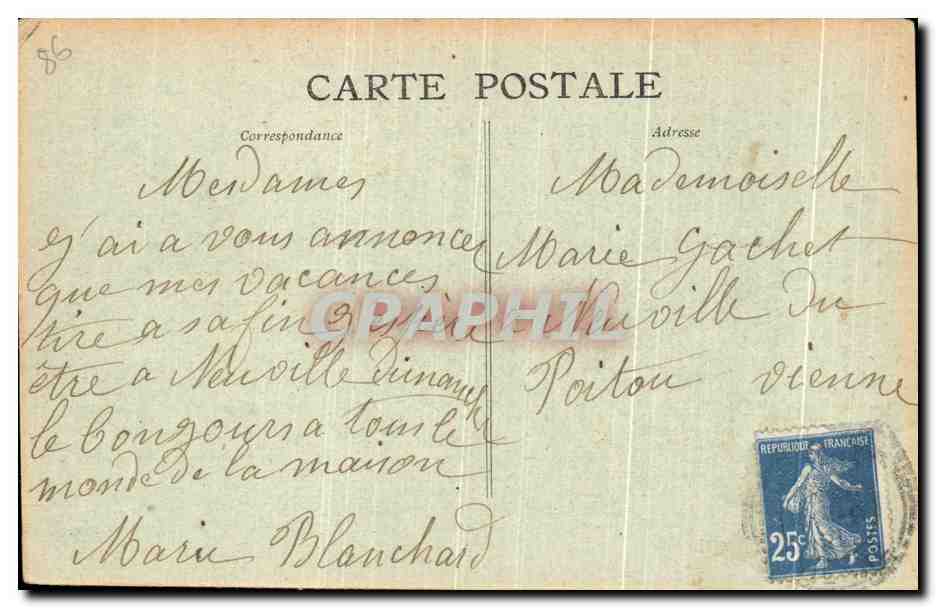 86
CARTE POSTALE
Correspondance
Mesdames
j'ai a vous annonces
que mes vacances
tire a sa fin j espère
être a Neuville
le bongours a tous le
monde de la maison
Marie Blanchard
Adresse
Mademoiselle
Marie Gachet
a Neuville du
Poitou vienne
REPUBLIQUE FRANÇAISE
25c
POSTES
CPAPHIL